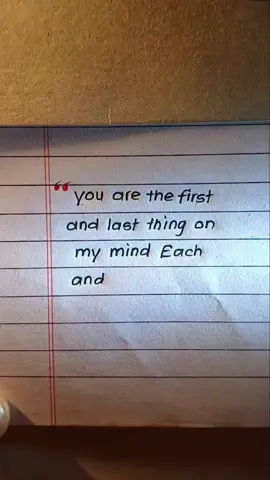 “you are the first
and last thing on
my mind Each
and